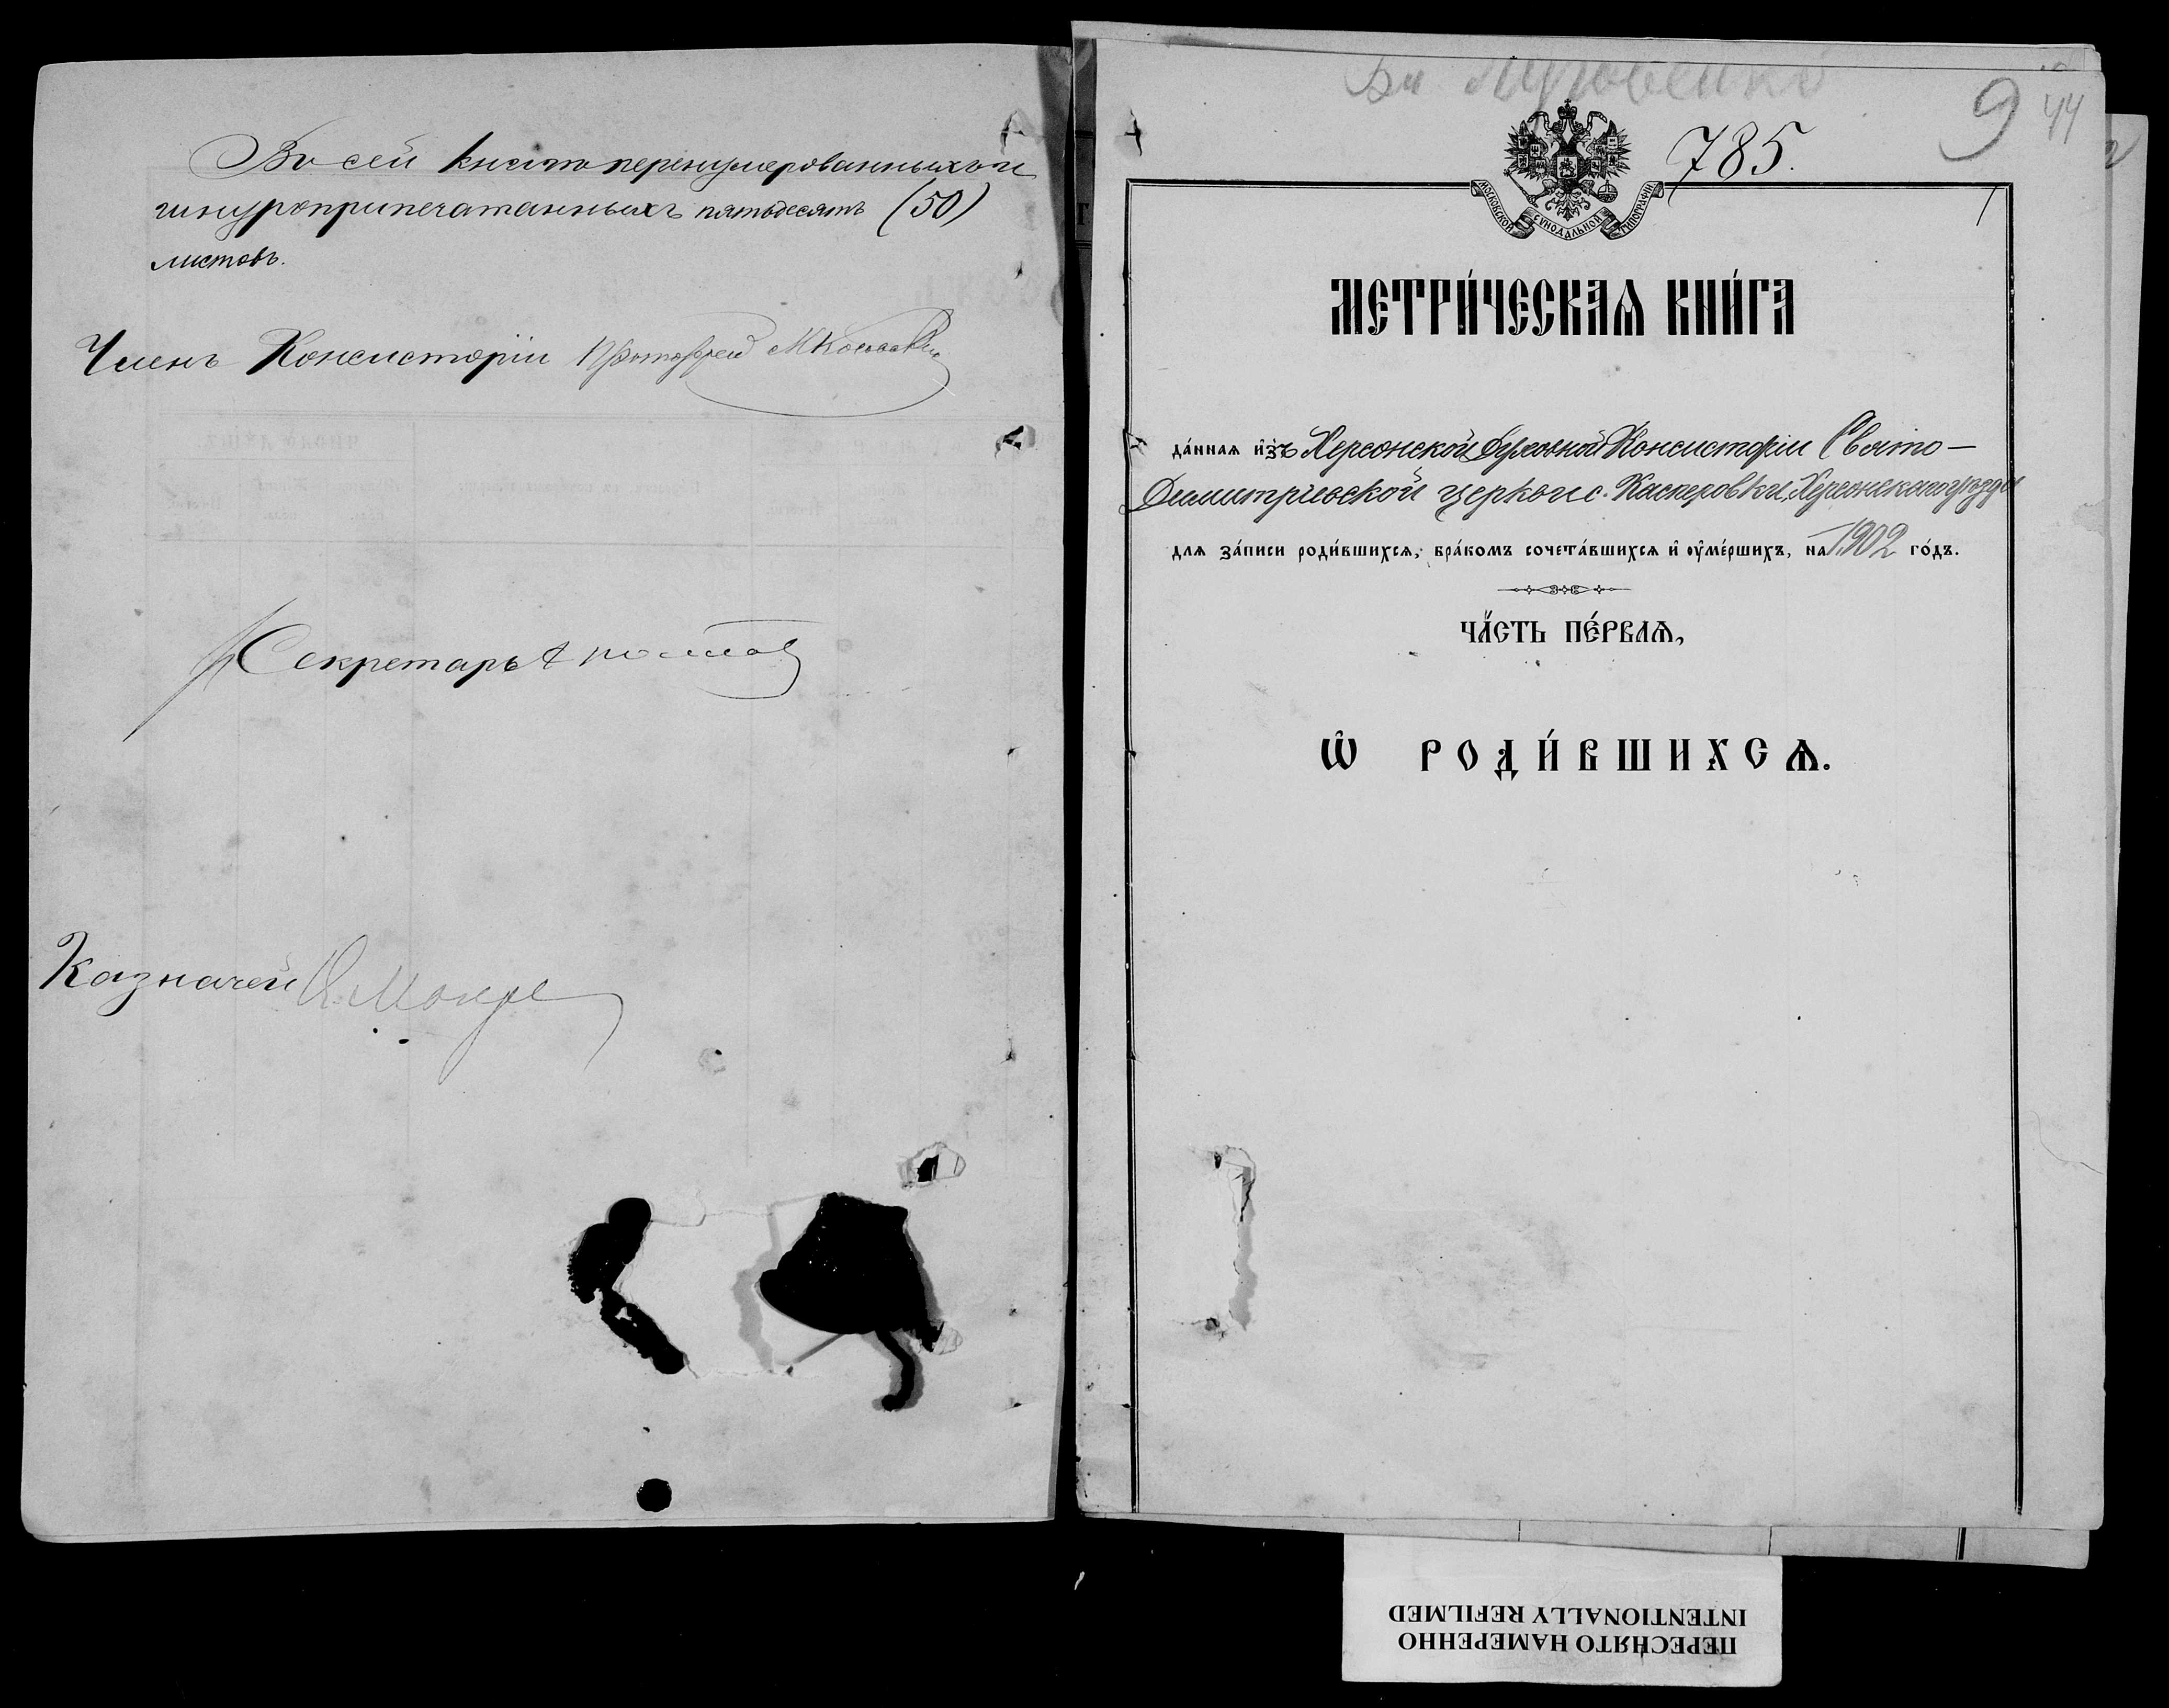 Въ сей книгѣ перенумерованныхъ и
шнуроприпечатанныхъ пятьдесятъ (50)
листовъ.
Членъ Консисторіи Протоіерей
Секретарь
Казначей
9 44
785.
1
МОСКОВСКОЙ СѴНОДАЛЬНОЙ ТИПОГРАФІИ
МЕТРИ́ЧЕСКАѦ КНИ́ГА
да́ннаѧ и҆зъ Херсонской Духовной Консисторіи Свято-
Димитріевской церкви с. Касперовки, Херсонскаго уѣзда
длѧ за́писи роди́вшихсѧ, бра́комъ сочета́вшихсѧ и҆ ᲂу҆ме́ршихъ, на 1902 го́дъ.
ЧА́СТЬ ПЕ́РВАѦ,
Ѽ РОДИ́ВШИХСѦ.
ПЕРЕСНЯТО НАМЕРЕННО
INTENTIONALLY REFILMED